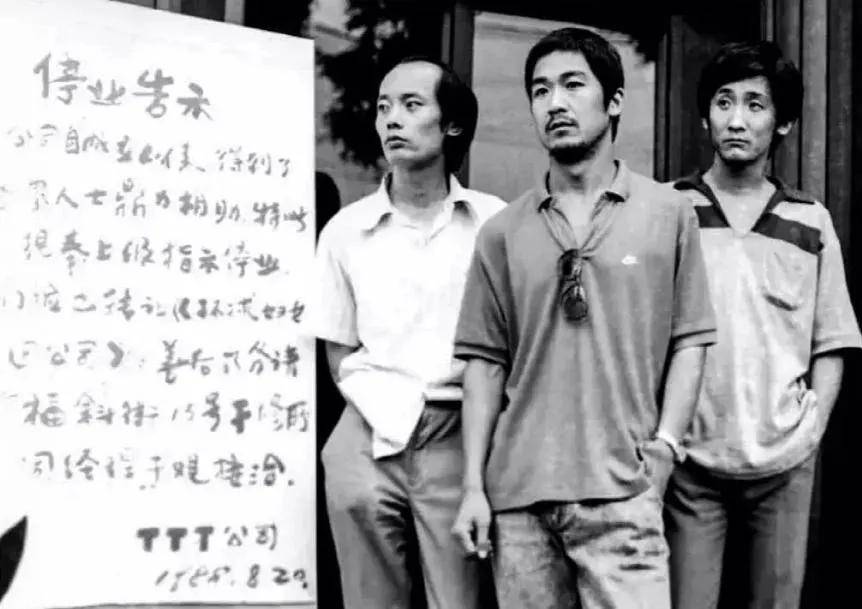 停业告示
公司自成立以来,得到了
界人士鼎力相助,特此
现奉上级指示停业.
已转让《环球妇女
公司》,善后请
福斜街15号
同经理于观接洽.
TTT公司
1988.8.20.